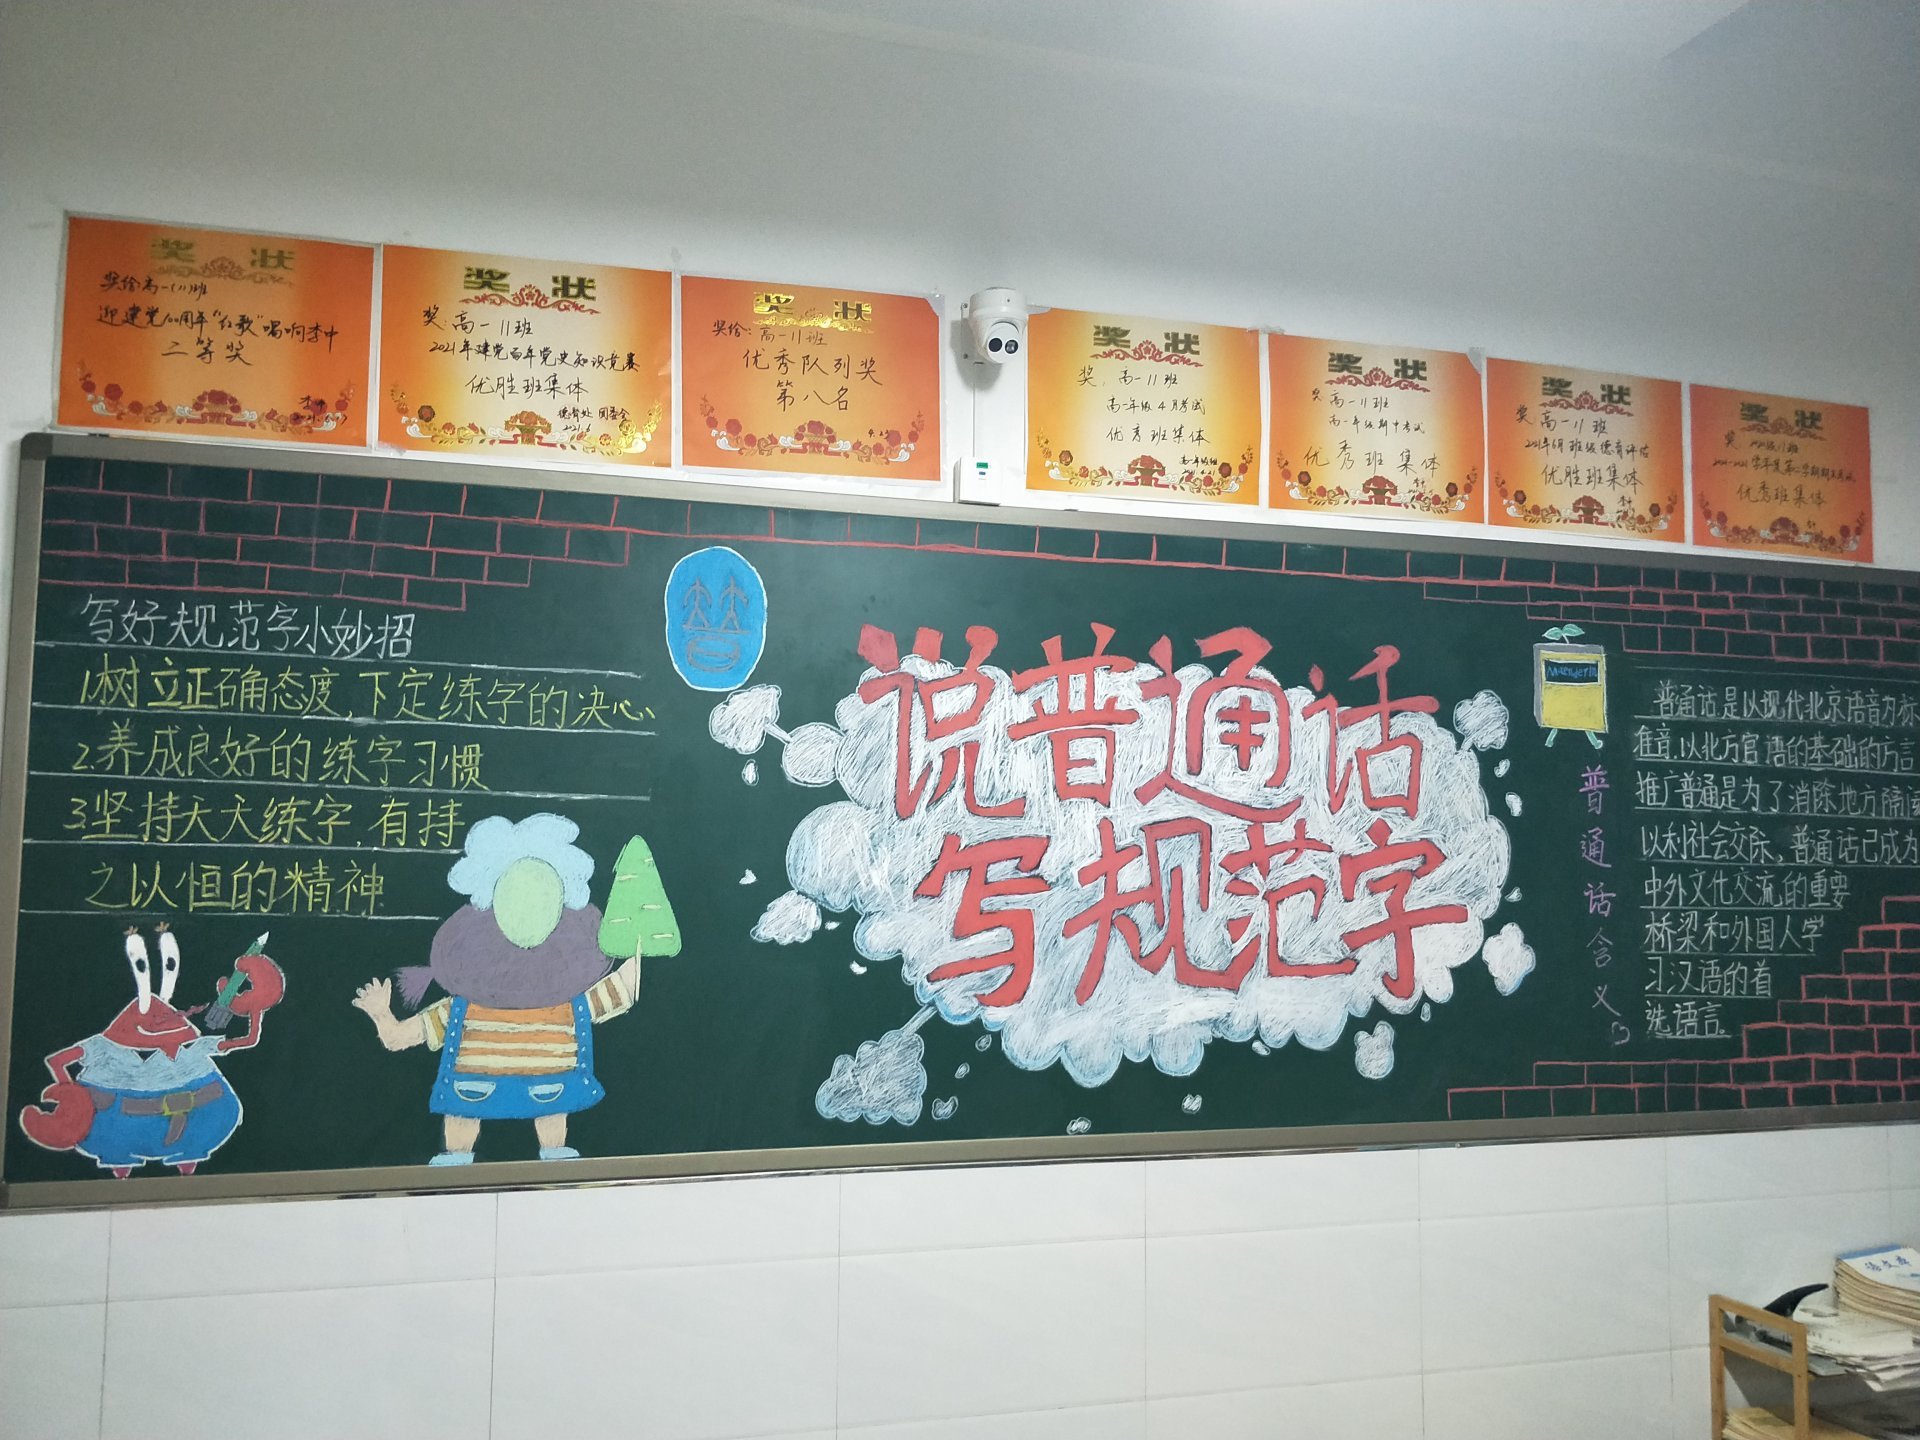 奖 状
奖给:高一(11)班
迎建党100周年"红歌"唱响李中
二等奖
奖 状
奖:高一11班
2021年建党百年党史知识竞赛
优胜班集体
德育处 团委会
2021.6
奖 状
奖给:高一11班
优秀队列奖
第八名
4.23
奖 状
奖:高一11班
高一年级4月考试
优秀班集体
高一年级组
奖 状
奖:高一11班
高一年级期中考试
优秀班集体
奖 状
奖:高一11班
2021年6月班级德育评估
优胜班集体
奖 状
优秀班集体
写好规范字小妙招
1.树立正确态度,下定练字的决心、
2.养成良好的练字习惯
3.坚持天天练字,有持
之以恒的精神
普
说普通话
写规范字
普通话含义
普通话是以现代北京语音为标
准音.以北方官话的基础的方言
推广普通是为了消除地方隔阂
以利社会交际,普通话已成为
中外文化交流的重要
桥梁和外国人学
习汉语的首
选语言.